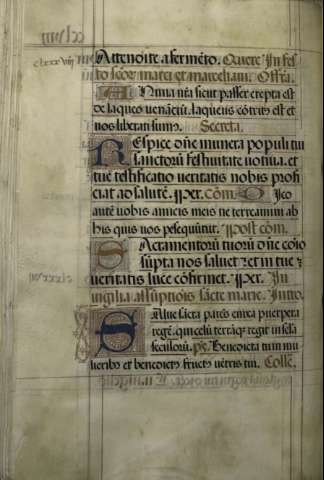 Attendite a fermēto. Quere In fes
to scōr marci et marceliani. Offřa.
Anima nr̄a sicut passer erepta est
de laqueo venātiū. laqueus cōtrit9 est et
nos liberati sum9. Secreta.
Respice dn̄e munera populi tui
sanctorū festiuitate votiua. et
tue testificatio veritatis nobis profi
ciat ad salutē. Per. cōm̄. Dico
autē vobis amicis meis ne terreamini ab
his qui vos persequūtur. Post com̄.
Sactamentorū tuorū dn̄e cōīo
sūpta nos saluet et in tue
veritatis luce cōfirmet. Per. In
uigilia assūptiōis sācte marie. Intro.
Salue sācta parēs enixa puerpera
regē. qui celū terrāqʒ regit in secla
seculorū. ps̄. Benedicta tu in mu
lieribus et benedict9 fruct9 vētris tui. Coll̄c.